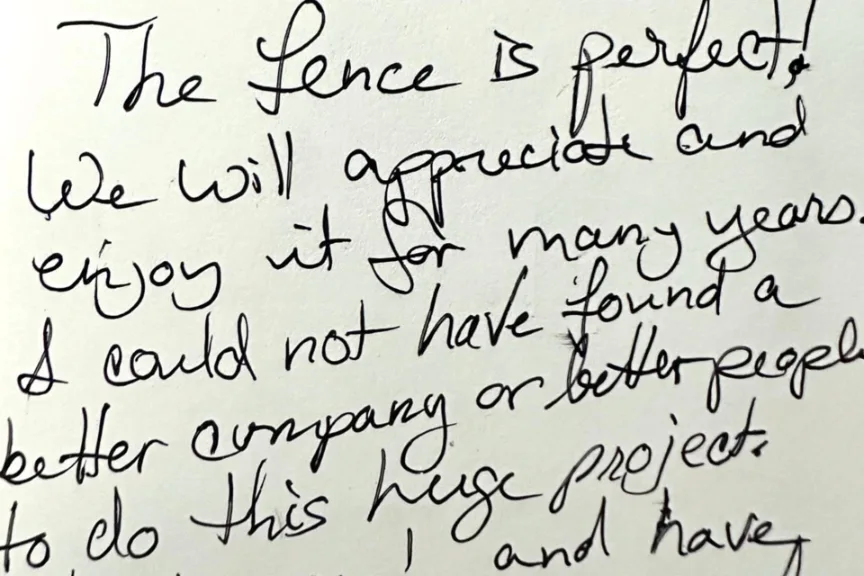 The fence is perfect!
We will appreciate and
enjoy it for many years.
I could not have found a
better company or better peopl
to do this huge project.
and have